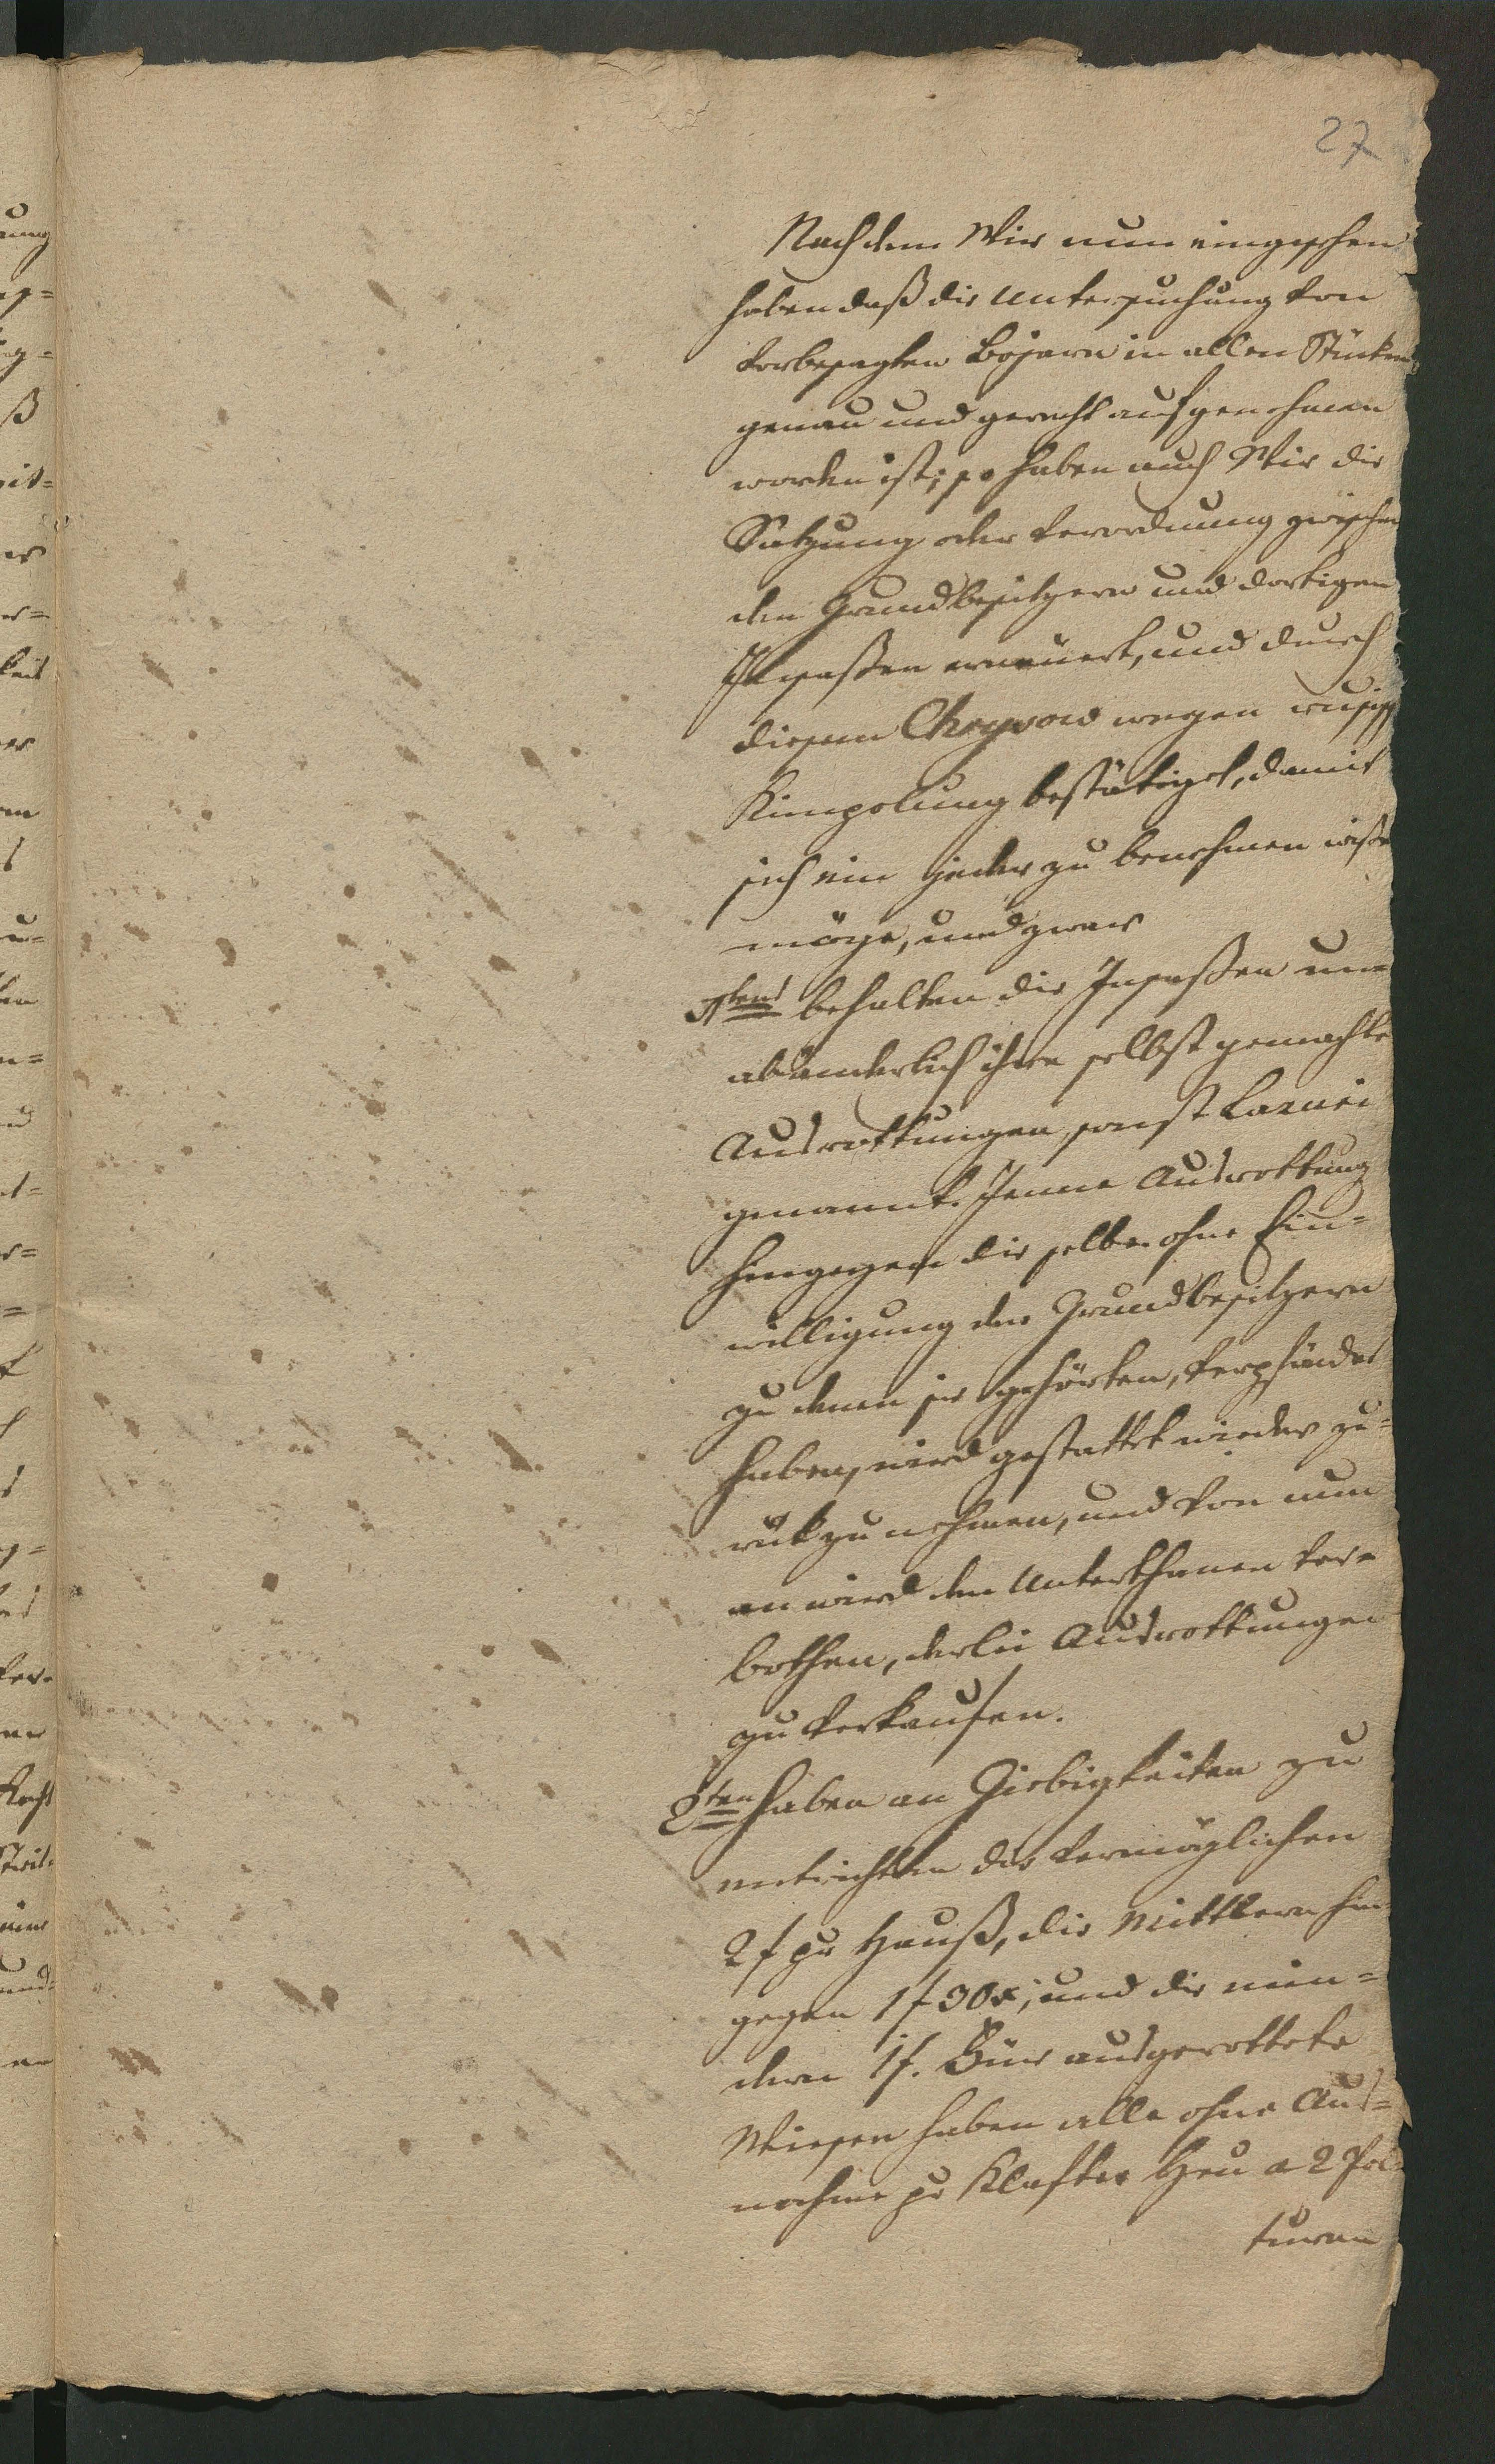 27
Nachdem Wir nun eingesehen
haben daß die Untersuchung von
vorbesagten Bojaren in allen Stücken
genau und gerecht aufgenohmen
worden ist; so haben auch Wir die
Satzung oder Verordnung zwischen
den Grundbesitzern und dortigen
Insaßen erneuert, und durch
diesem Chrysow wegen russisch
Kimpolung bestätiget, damit
sich ein jeder zu benehmen wißen
möge, und zwar
1tens behalten die Insaßen un=
abänderlich ihre selbst gemachte
Ausrottungen, sonst Lazuri
genannt. Jenne Ausrottung
hingegen die selbe ohne Ein=
willigung der Grundbesitzern
zu denen sie gehörten, verpfändet
haben, wird gestattet wieder zu=
rük zu nehmen, und von nun
an wird den Unterthanen ver=
bothen, derlei Ausrottungen
zu verkaufen.
2ten haben an Giebigkeiten zu
entrichten die vermöglichen
2 f pr Hauß, die Mittlern hin
gegen 1 f 30 x; und die min=
dern 1 f. Für ausgerottete
Wiesen haben alle ohne Aus=
nahme pr Klafter Heu a 2 Pol
turen